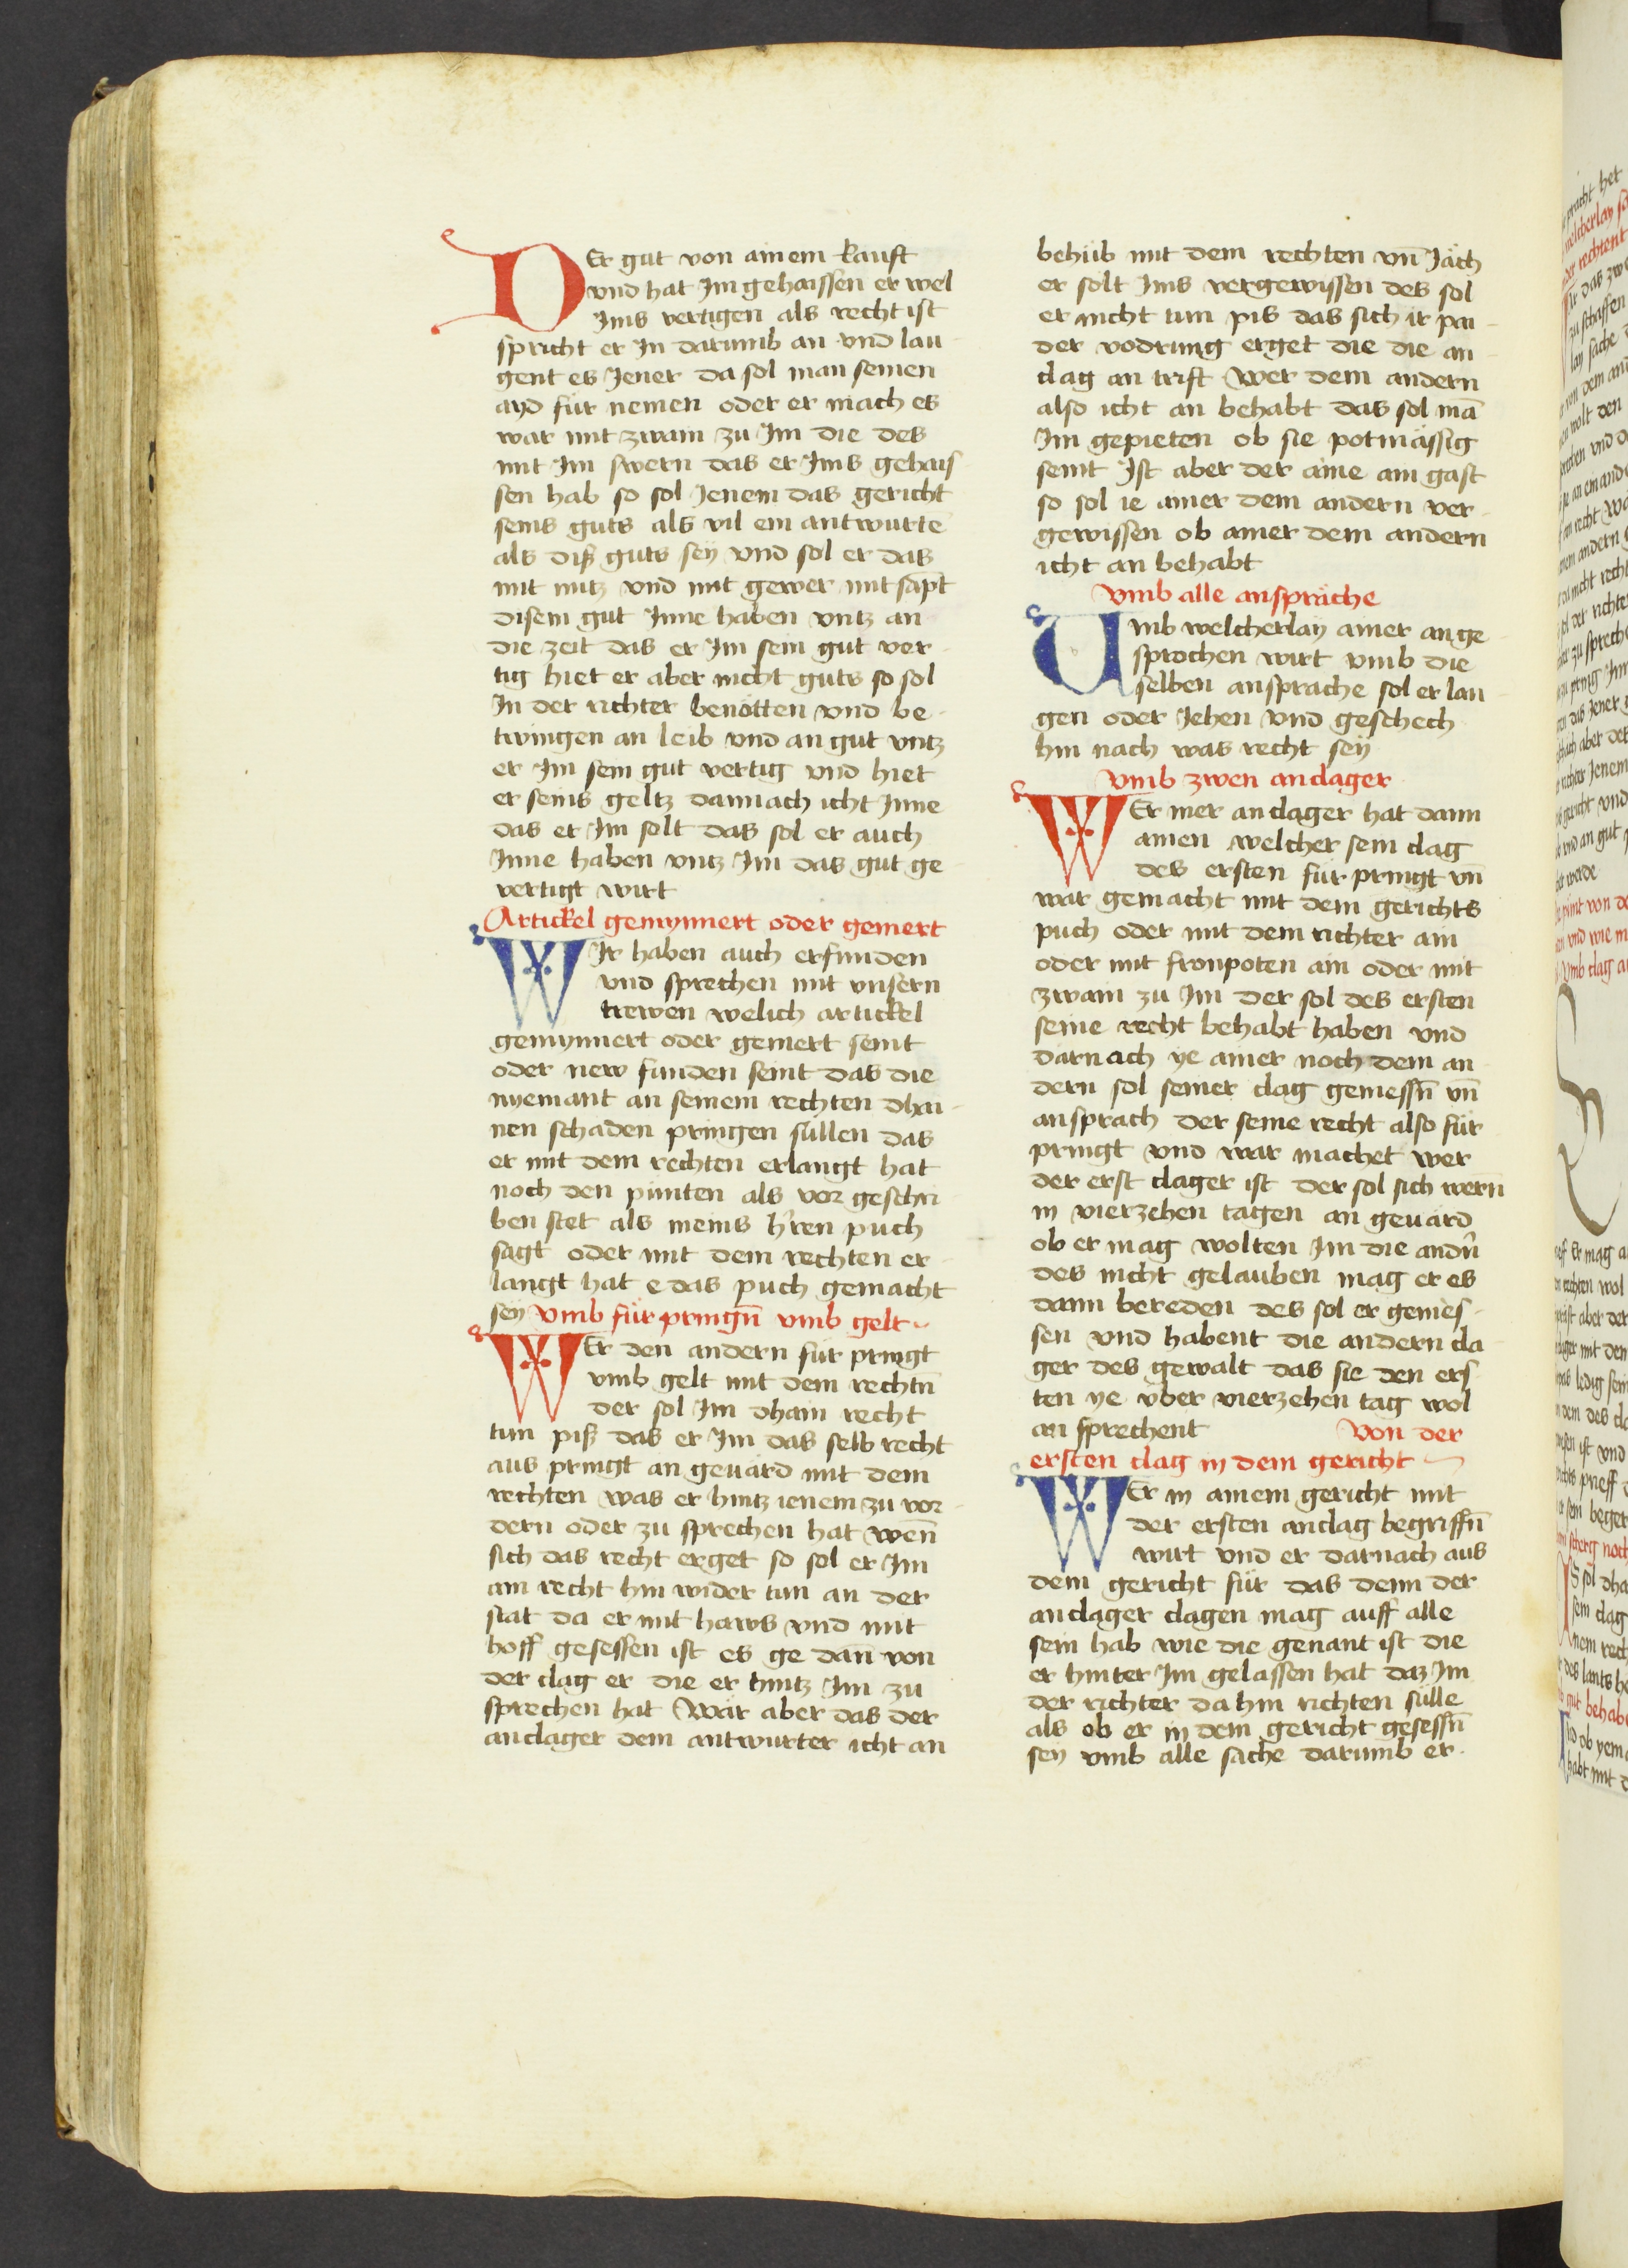 DEr gut von ainem kauft
vnd hat Im gehaissen er wel
Ims vertigen als recht ist
spricht er In darumb an vnd lau
gent es Jener da sol man seinen
ayd für nemen oder er mach es
war mit zwain zu Im die des
mit Im swern das er Ims gehais
sen hab so sol Jenem das gericht
seins guts als vil ein antwurtē
als diß guts seÿ vnd sol er das
mit nutz vnd mit gewer mit sāpt
disem gut Inne haben vntz an
die zeit das er Im sein gut ver
tig hiet er aber nicht guts so sol
In der richter benötten vnd be
twingen an leib vnd an gut vntz
er Im sein gut vertig vnd hiet
er seins geltz dannach icht Inne
das er Im solt das sol er auch
Inne haben vntz Im das gut ge
vertigt wirt
Artickel gemynnert oder gemert
WIr haben auch erfunden
vnd sprechen mit vnsern
trewen welich artickel
gemynnert oder gemert seint
oder new funden seint das die
nyemant an seinem rechten dhai
nen schaden pringen süllen das
er mit dem rechten erlangt hat
noch den punten als vor geschri
ben stet als meins h'ren puch
sagt oder mit dem rechten er
langt hat e das puch gemacht
seÿ vmb für pringn̄ vmb gelt
WEr den andern für pringt
vmb gelt mit dem rechtn̄
der sol Im dhain recht
tun piß das er Im das selb recht
aus pringt an geuärd mit dem
rechten was er hintz ienem zu vor
dern oder zu sprechen hat wen̄
sich das recht erget so sol er Im
ain recht hin wider tun an der
stat da er mit haws vnd mit
hoff gesessen ist es ge dan̄ von
der clag er die er hintz Im zu
sprechen hat Wär aber das der
anclager dem antwurter icht an
behüb mit dem rechten vn̄ Jäch
er solt Ims vergewissen des sol
er nicht tun pis das sich ir pai
der vodrung erget die die an
clag an trift Wer dem andern
also icht an behabt das sol mā
Im gepieten ob sie potmässig
seint Ist aber der aine ain gast
so sol ie ainer dem andern ver
gewissen ob ainer dem andern
icht an behabt
Vmb alle ansprāche
Umb welcherlay ainer an ge
sprochen wirt vmb die
selben ansprache sol er lau
gen oder Jehen vnd geschech
hin nach was recht seÿ
Vmb zwen anclager
WEr mer anclager hat dann
ainen welcher sein clag
des ersten für pringt vn̄
war gemacht mit dem gerichts
puch oder mit dem richter ain
oder mit fronpoten ain oder mit
zwain zu Im der sol des ersten
seine recht behabt haben vnd
darnach ye ainer noch dem an
dern sol seiner clag geniessn̄ vn̄
ansprach der seine recht also für
pringt vnd war machet wer
der erst clager ist der sol sich wern̄
in vierzehen tagen an geuärd
ob er mag wolten Im die andn̄
des nicht gelauben mag er es
dann bereden des sol er genies
sen vnd habent die andern cla
ger des gewalt das sie den ers
ten ye über vierzehen tag wol
an sprechent Von der
ersten clag in dem gericht
WEr in ainem gericht mit
der ersten anclag begriffn̄
wirt vnd er darnach aus
dem gericht für das denn der
anclager clagen mag auff alle
sein hab wie die genant ist die
er hinter Im gelassen hat daz Im
der richter da hin richten sülle
als ob er in dem gericht gesessn̄
sey vmb alle sache darumb er